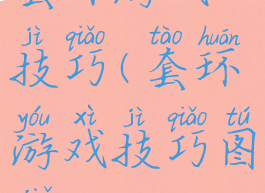 jì qiǎo tào huán
技巧(套环
yóu xì jì qiǎo tú
游戏技巧图